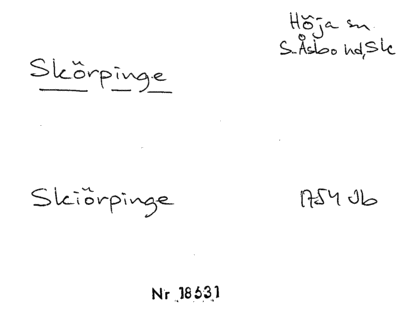 Höja sn
S. Åsbo hd, Sk
Skörpinge
Skiörpinge 1754 Jb
Nr 18531